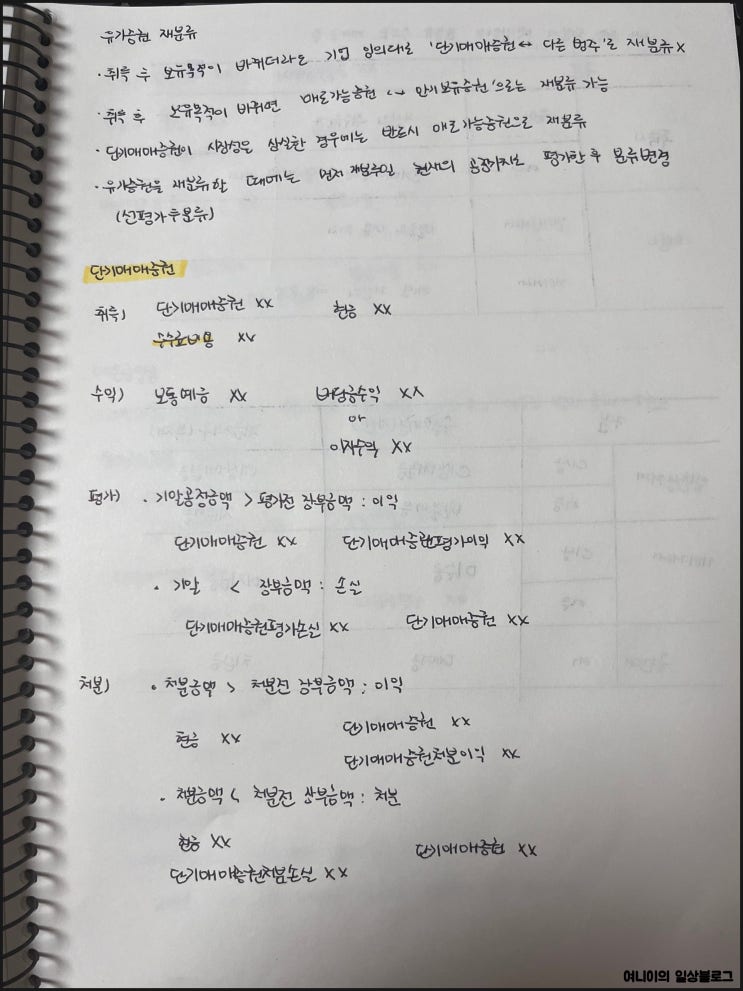 유가증권 재분류
· 취득 후 보유목적이 바뀌더라도 기업 임의대로 '단기매매증권 ↔ 다른 범주'로 재분류 x
· 취득 후 보유목적이 바뀌면 매도가능증권 ↔ 만기보유증권'으로는 재분류 가능
· 단기매매증권이 시장성을 상실한 경우에는 반드시 매도가능증권으로 재분류
· 유가증권을 재분류할 때에는 먼저 재분류일 현재의 공정가치로 평가한 후 분류변경
(선평가후분류)
단기매매증권
취득) 단기매매증권 xx 현금 xx
수수료비용 xx
수익) 보통예금 xx 배당금수익 xx
or
이자수익 xx
평가) · 기말공정금액 > 평가전 장부금액 : 이익
단기매매증권 xx 단기매매증권평가이익 xx
· 기말 < 장부금액 : 손실
단기매매증권평가손실 xx 단기매매증권 xx
처분) · 처분금액 > 처분전 장부금액 : 이익
현금 xx 단기매매증권 xx
단기매매증권처분이익 xx
· 처분금액 < 처분전 장부금액 : 처분
현금 xx 단기매매증권 xx
단기매매증권처분손실 xx
여니이의 일상블로그